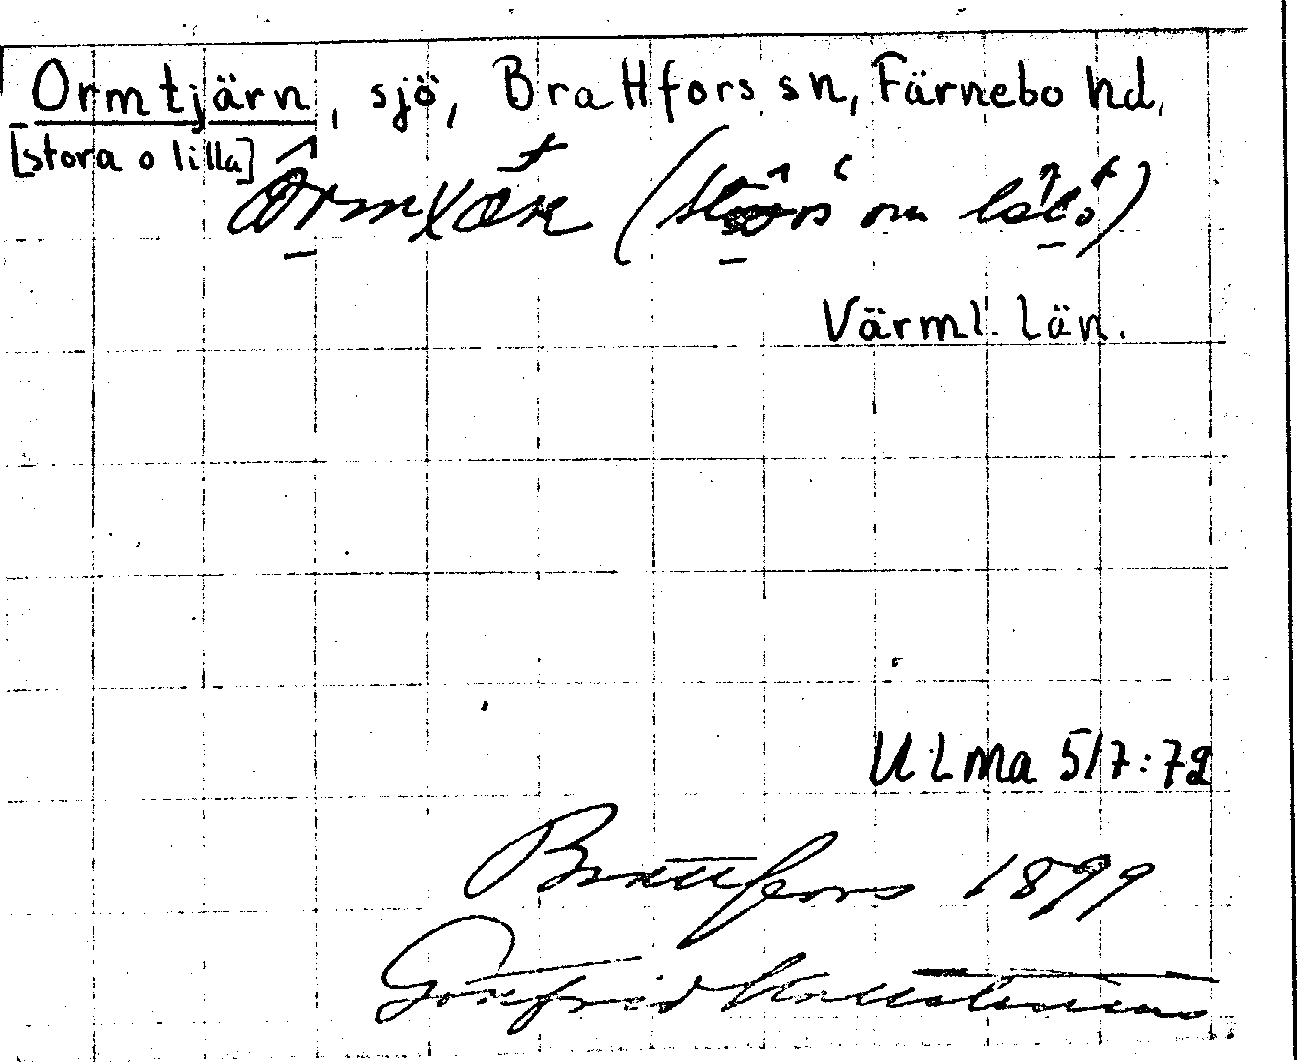 Ormtjärn, sjö, Brattfors sn, Färnebo hd.
[stora o lilla]
Värml. län.
ULMA 517:72
Brattfors 1899
Gottfrid Kallstenius